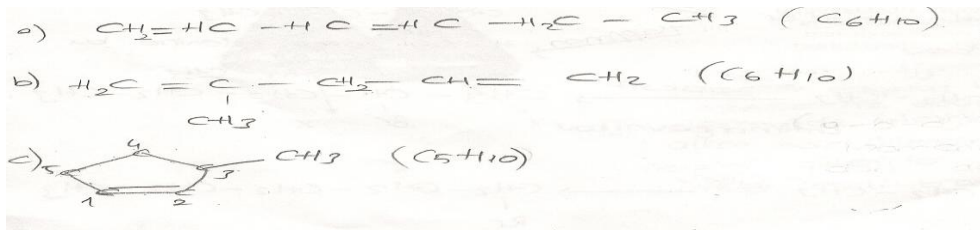 a) CH2=HC-HC=HC-H2C-CH3 (C6H10)
b) H2C=C-CH2-CH=CH2 (C6H10)
CH3
c) 5 4 3 CH3 (C5H10)
1 2